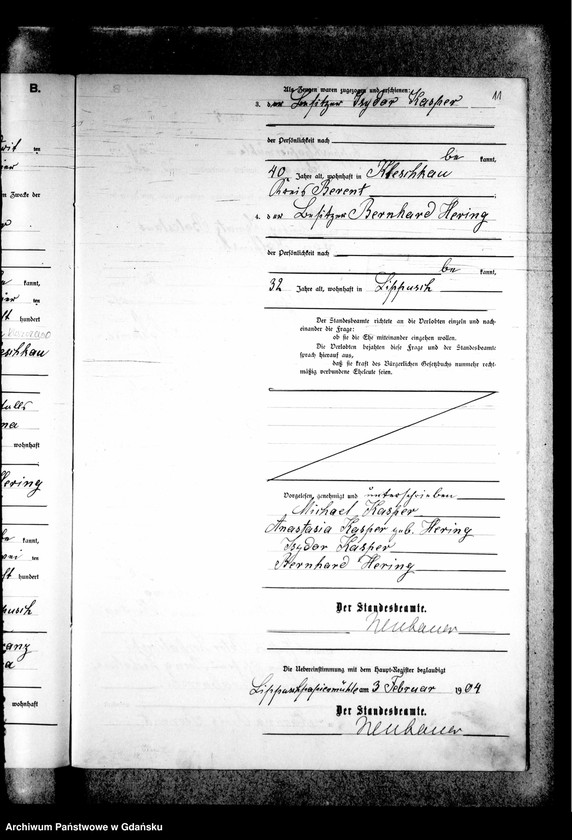 B.
11
Als Zeugen waren zugezogen und erschienen:
3. der Besitzer Isydor Kasper
der Persönlichkeit nach
be kannt,
40 Jahre alt, wohnhaft in Kleschkau
Kreis Berent
4. der Besitzer Bernhard Hering
der Persönlichkeit nach
be kannt,
32 Jahre alt, wohnhaft in Lippusch
Der Standesbeamte richtete an die Verlobten einzeln und nach-
einander die Frage:
ob sie die Ehe miteinander eingehen wollen.
Die Verlobten bejahten diese Frage und der Standesbeamte
sprach hierauf aus,
daß sie kraft des Bürgerlichen Gesetzbuchs nunmehr recht-
mäßig verbundene Eheleute seien.
Vorgelesen, genehmigt und unterschrieben
Michael Kasper
Anastasia Kasper geb. Hering
Isydor Kasper
Bernhard Hering
Der Standesbeamte.
Neubauer
Die Uebereinstimmung mit dem Haupt-Register beglaubigt
Lippuschpapiermühle am 3 Februar 1904
Der Standesbeamte.
Neubauer
ten
m Zwecke der
kannt,
ten
hundert
eschkau
wohnhaft
Hering
kannt,
ten
hundert
pusch
ranz
wohnhaft
Archiwum Państwowe w Gdańsku